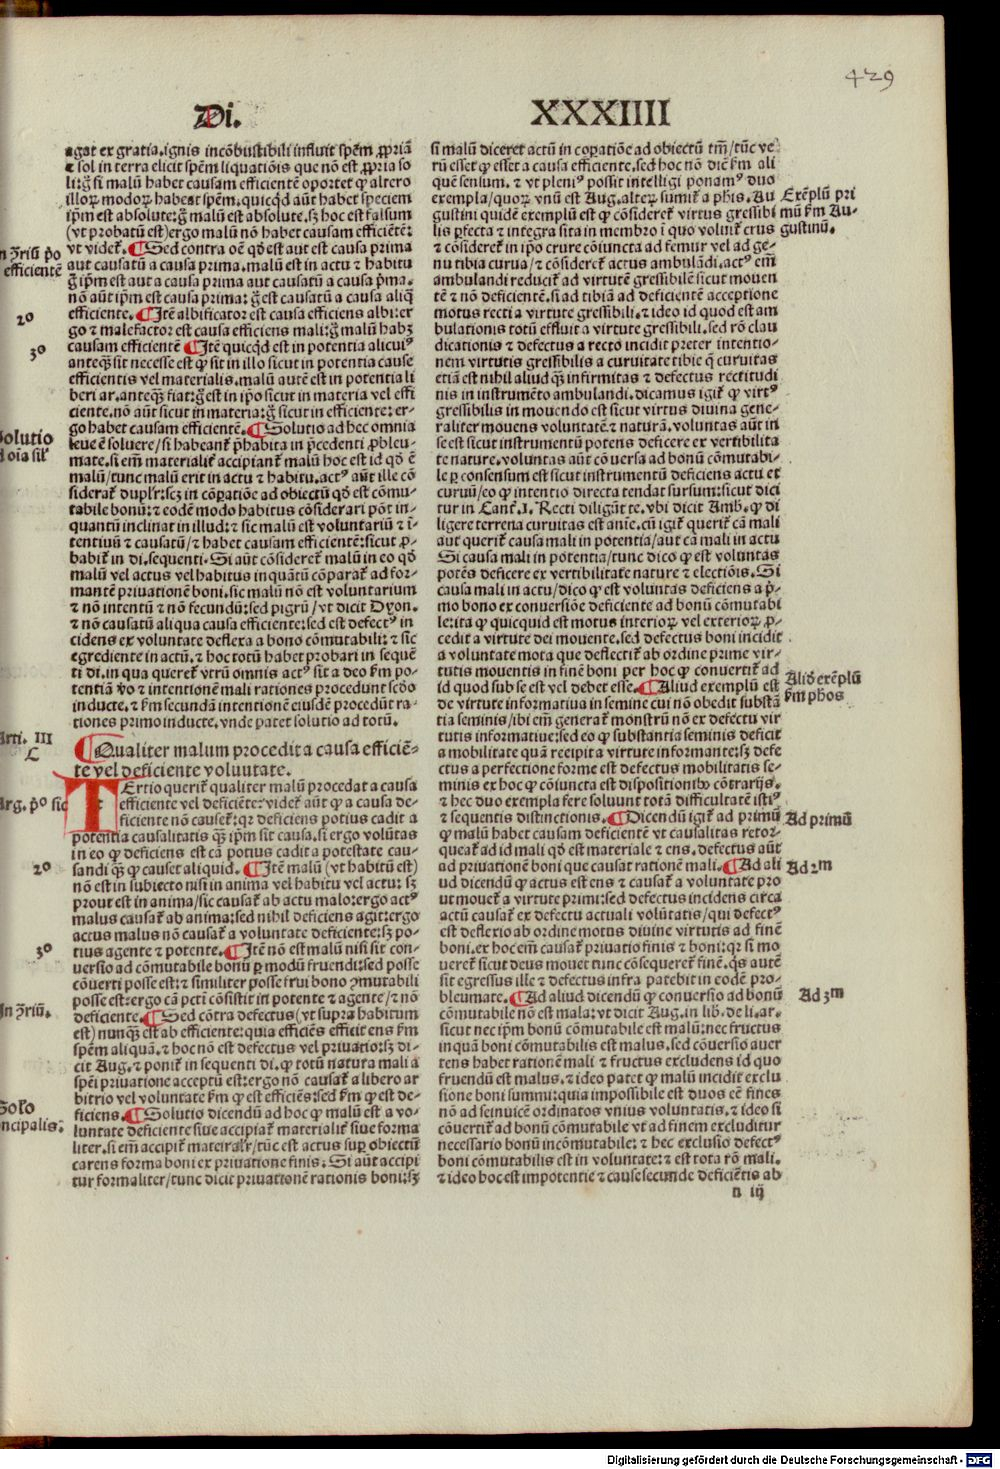 429
Di.
XXXIIII
agat ex gratia.ignis incõbustibili influit spẽm ꝓpriã
⁊ sol in terra elicit spẽm liquatiõis que nõ est ꝓpria so
li:g̃ si malũ habet causam efficientẽ oportet ꝙ altero
illoꝝ modoꝝ habeat spẽm.quicq̃d aũt habet speciem
ip̃m est absolute:g̃ malũ est absolute.sꝫ hoc est falsum
(vt probatũ est)ergo malũ nõ habet causam efficientẽ:
vt videt᷑. ¶Sed contra oẽ qð est aut est causa prima
aut causatũ a causa prima.malũ est in actu ⁊ habitu
g̃ ip̃m est aut a causa prima aut causatũ a causa p̃ma.
nõ aũt ip̃m est causa prima: g̃ est causatũ a causa aliq̃
efficiente. ¶Itẽ albificator est causa efficiens albi:er⸗
go ⁊ malefactor est causa efficiens mali:g̃ malũ habꝫ
causam efficientẽ ¶Itẽ quicq̃d est in potentia alicuiꝰ
anteq̃ꝫ sit necesse est ꝙ sit in illo sicut in potentia cause
efficientis vel materialis.malũ autẽ est in potentia li
beri ar.anteq̃ꝫ fiat:g̃ est in ip̃o sicut in materia vel effi
ciente.nõ aũt sicut in materia:g̃ sicut in efficiente: er⸗
go habet causam efficientẽ. ¶Solutio ad hec omnia
leue ẽ soluere/si habeant᷑ p̃habita in p̃cedenti ꝓbleu⸗
mate.si em̃ materialit᷑ accipiant᷑ malũ hoc est id qð ẽ
malũ/tunc malũ erit in actu ⁊ habitu.actꝰ aũt ille cõ
siderat᷑ duplr̃:scꝫ in cõparatiõe ad obiectũ qð est cõmu⸗
tabile bonũ:⁊ eodẽ modo habitus cõsiderari põt in⸗
quantũ inclinat in illud:⁊ sic malũ est voluntariũ ⁊ ĩ⸗
tentiuũ ⁊ causatũ/⁊ habet causam efficientẽ:sicut ꝓ⸗
babit᷑ in di.sequenti. Si aũt cõsideret᷑ malũ in eo qð
malũ vel actus vel habitus inquãtũ cõparat᷑ ad for⸗
mantẽ priuationẽ boni.sic malũ nõ est voluntarium
⁊ nõ intentũ ⁊ nõ fecundũ:sed pigrũ/vt dicit Dyon.
⁊ nõ causatũ aliqua causa efficiente:sed est defectꝰ in
cidens ex voluntate deflexa a bono cõmutabili: ⁊ sic
egrediente in actũ.⁊ hoc totũ habet probari in sequẽ
ti di.in qua queret᷑ vtrũ omnis actꝰ sit a deo k̃m po⸗
tentiã v̊o ⁊ intentionẽ mali rationes procedunt sc̃do
inducte.⁊ k̃m secundã intentionẽ eiusdẽ procedũt ra⸗
tiones primo inducte.vnde patet solutio ad totũ.
¶Qualiter malum procedit a causa efficiẽ⸗
te vel deficiente voluntate.
TErtio querit᷑ qualiter malũ procedat a causa
efficiente vel deficiẽte:videt᷑ aũt ꝙ a causa de⸗
ficiente nõ causet᷑:qꝛ deficiens potius cadit a
potentia causalitatis q̃ꝫ ip̃m sit causa.si ergo volũtas
in eo ꝙ deficiens est cã potius cadit a potestate cau⸗
sandi q̃ꝫ ꝙ causet aliquid. ¶Itẽ malũ (vt habitũ est)
nõ est in subiecto nisi in anima vel habitu vel actu: sꝫ
prout est in anima/sic causat᷑ ab actu malo:ergo actꝰ
malus causat᷑ ab anima:sed nihil deficiens agit:ergo
actus malus nõ causat᷑ a voluntate deficiente:sꝫ po⸗
tius agente ⁊ potente. ¶Itẽ nõ est malũ nisi sit con⸗
uersio ad cõmutabile bonũ ꝑ modũ fruendi:sed posse
cõuerti posse est:⁊ similiter posse frui bono ꝯmutabili
posse est:ergo cã pcti cõsistit in potente ⁊ agente/⁊ nõ
deficiente. ¶Sed cõtra defectus(vt supra habitum
est) nunq̃ꝫ est ab efficiente:quia efficiẽs efficit ens k̃m
spẽm aliquã.⁊ hoc nõ est defectus vel priuatio:sꝫ di⸗
cit Aug.⁊ ponit᷑ in sequenti di.ꝙ totũ natura mali a
spẽi priuatione acceptũ est:ergo nõ causat᷑ a libero ar
bitrio vel voluntate k̃m ꝙ est efficiẽs:sed k̃m ꝙ est de⸗
ficiens. ¶Solutio dicendũ ad hoc ꝙ malũ est a vo⸗
luntate deficiente siue accipiat᷑ materialit᷑ siue forma
liter.si em̃ accipit᷑ materialr̃/tũc est actus suꝑ obiectũ
carens forma boni ex priuatione finis: Si aũt accipi
tur formaliter/tunc dicit priuationẽ rationis boni:sꝫ
n ꝯ̃riũ p̊o
efficientẽ
2º
3º
Solutio
d oĩa sil᷑
Arti. III
C
Arg. p̊o sic
2º
3º
In ꝯ̃riũ.
Solo
ncipalis:
si malũ diceret actũ in cõparatiõe ad obiectũ tm̃/tũc ve
rũ esset ꝙ esset a causa efficiente.sed hoc nõ diẽ k̃m ali
quẽ sensum.⁊ vt pleniꝰ possit intelligi ponamꝰ duo
exempla/quoꝝ vnũ est Aug.alteꝝ sumit᷑ a phis. Au
gustini quidẽ exemplũ est ꝙ cõsideret᷑ virtus gressibi
lis ꝑfecta ⁊ integra sita in membro ĩ quo voluit᷑ crus
⁊ cõsideret᷑ in ip̃o crure cõiuncta ad femur vel ad ge⸗
nu tibia curua/⁊ cõsideret᷑ actus ambulãdi.actꝰ em̃
ambulandi reducit᷑ ad virtutẽ gressibilẽ sicut mouen
tẽ ⁊ nõ deficientẽ.si ad tibiã ad deficientẽ acceptione
motus recti a virtute gressibili.⁊ ideo id quod est am
bulationis totũ effluit a virtute gressibili.sed rõ clau
dicationis ⁊ defectus a recto incidit preter intentio⸗
nem virtutis gressibilis a curuitate tibie q̃ curuitas
etiã est nihil aliud q̃ꝫ infirmitas ⁊ defectus rectitudi
nis in instrumẽto ambulandi.dicamus igit᷑ ꝙ virtꝰ
gressibilis in mouendo est sicut virtus diuina gene⸗
raliter mouens voluntatẽ ⁊ naturã.voluntas aũt in
se est sicut instrumentũ potens deficere ex vertibilita
te nature.voluntas aũt cõuersa ad bonũ cõmutabi⸗
le ꝑ consensum est sicut instrumentũ deficiens actu et
curuũ/eo ꝙ intentio directa tendat sursum:sicut dici
tur in Cant᷑.I. Recti diligũt te.vbi dicit Amb.ꝙ di
ligere terrena curuitas est anĩe.cũ igit᷑ querit᷑ cã mali
aut querit᷑ causa mali in potentia/aut cã mali in actu
Si causa mali in potentia/tunc dico ꝙ est voluntas
potẽs deficere ex vertibilitate nature ⁊ electiõis. Si
causa mali in actu/dico ꝙ est voluntas deficiens a p̃⸗
mo bono ex conuersiõe deficiente ad bonũ cõmutabi
le:ita ꝙ quicquid est motus interioꝝ vel exterioꝝ ꝓ⸗
cedit a virtute dei mouente.sed defectus boni incidit
a voluntate mota que deflectit᷑ ab ordine prime vir⸗
tutis mouentis in finẽ boni per hoc ꝙ conuertit᷑ ad
id quod sub se est vel debet esse. ¶Aliud exemplũ est
de virtute informatiua in semine cui nõ obedit substã
tia seminis/ibi em̃ generat᷑ monstrũ nõ ex defectu vir
tutis informatiue:sed eo ꝙ substantia seminis deficit
a mobilitate quã recipit a virtute informante:sꝫ defe
ctus a perfectione forme est defectus mobilitatis se⸗
minis ex hoc ꝙ cõiuncta est dispositionibꝰ cõtrarijs.
⁊ hec duo exempla fere soluunt totã difficultatẽ istiꝰ
⁊ sequentis distinctionis. ¶Dicendũ igit᷑ ad primũ
ꝙ malũ habet causam deficientẽ vt causalitas retor⸗
queat᷑ ad id mali qð est materiale ⁊ ens.defectus aũt
ad priuationẽ boni que causat rationẽ mali. ¶Ad ali
ud dicendũ ꝙ actus est ens ⁊ causat᷑ a voluntate pro
ut mouet᷑ a virtute primi:sed defectus incidens circa
actũ causat᷑ ex defectu actuali volũtatis/qui defectꝰ
est deflexio ab ordine motus diuine virtutis ad finẽ
boni.ex hoc em̃ causat᷑ priuatio finis ⁊ boni:qꝛ si mo
ueret᷑ sicut deus mouet tunc cõsequeret᷑ finẽ.q̃s autẽ
sit egressus ille ⁊ defectus infra patebit in eodẽ pro⸗
bleumate. ¶Ad aliud dicendũ ꝙ conuersio ad bonũ
cõmutabile nõ est mala:vt dicit Aug.in lib.de li.ar.
sicut nec ip̃m bonũ cõmutabile est malũ:nec fructus
inquã boni cõmutabilis est malus.sed cõuersio auer
tens habet rationẽ mali ⁊ fructus excludens id quo
fruendũ est malus.⁊ ideo patet ꝙ malũ incidit exclu
sione boni summi:quia impossibile est duos eẽ fines
nõ ad seinuicẽ ordinatos vnius voluntatis.⁊ ideo si
cõuertit᷑ ad bonũ cõmutabile vt ad finem excluditur
necessario bonũ incõmutabile: ⁊ hec exclusio defectꝰ
boni cõmutabilis est in voluntate:⁊ est tota rõ mali.
⁊ ideo hoc est impotentie ⁊ cause secunde deficiẽtis ab
n iij
Exẽplũ pri
mũ k̃m Au⸗
gustinũ.
Aliđ exẽplũ
k̃m phos
Ad primũ
Ad 2m
Ad 3m
Digitalisierung gefördert durch die Deutsche Forschungsgemeinschaft - DFG